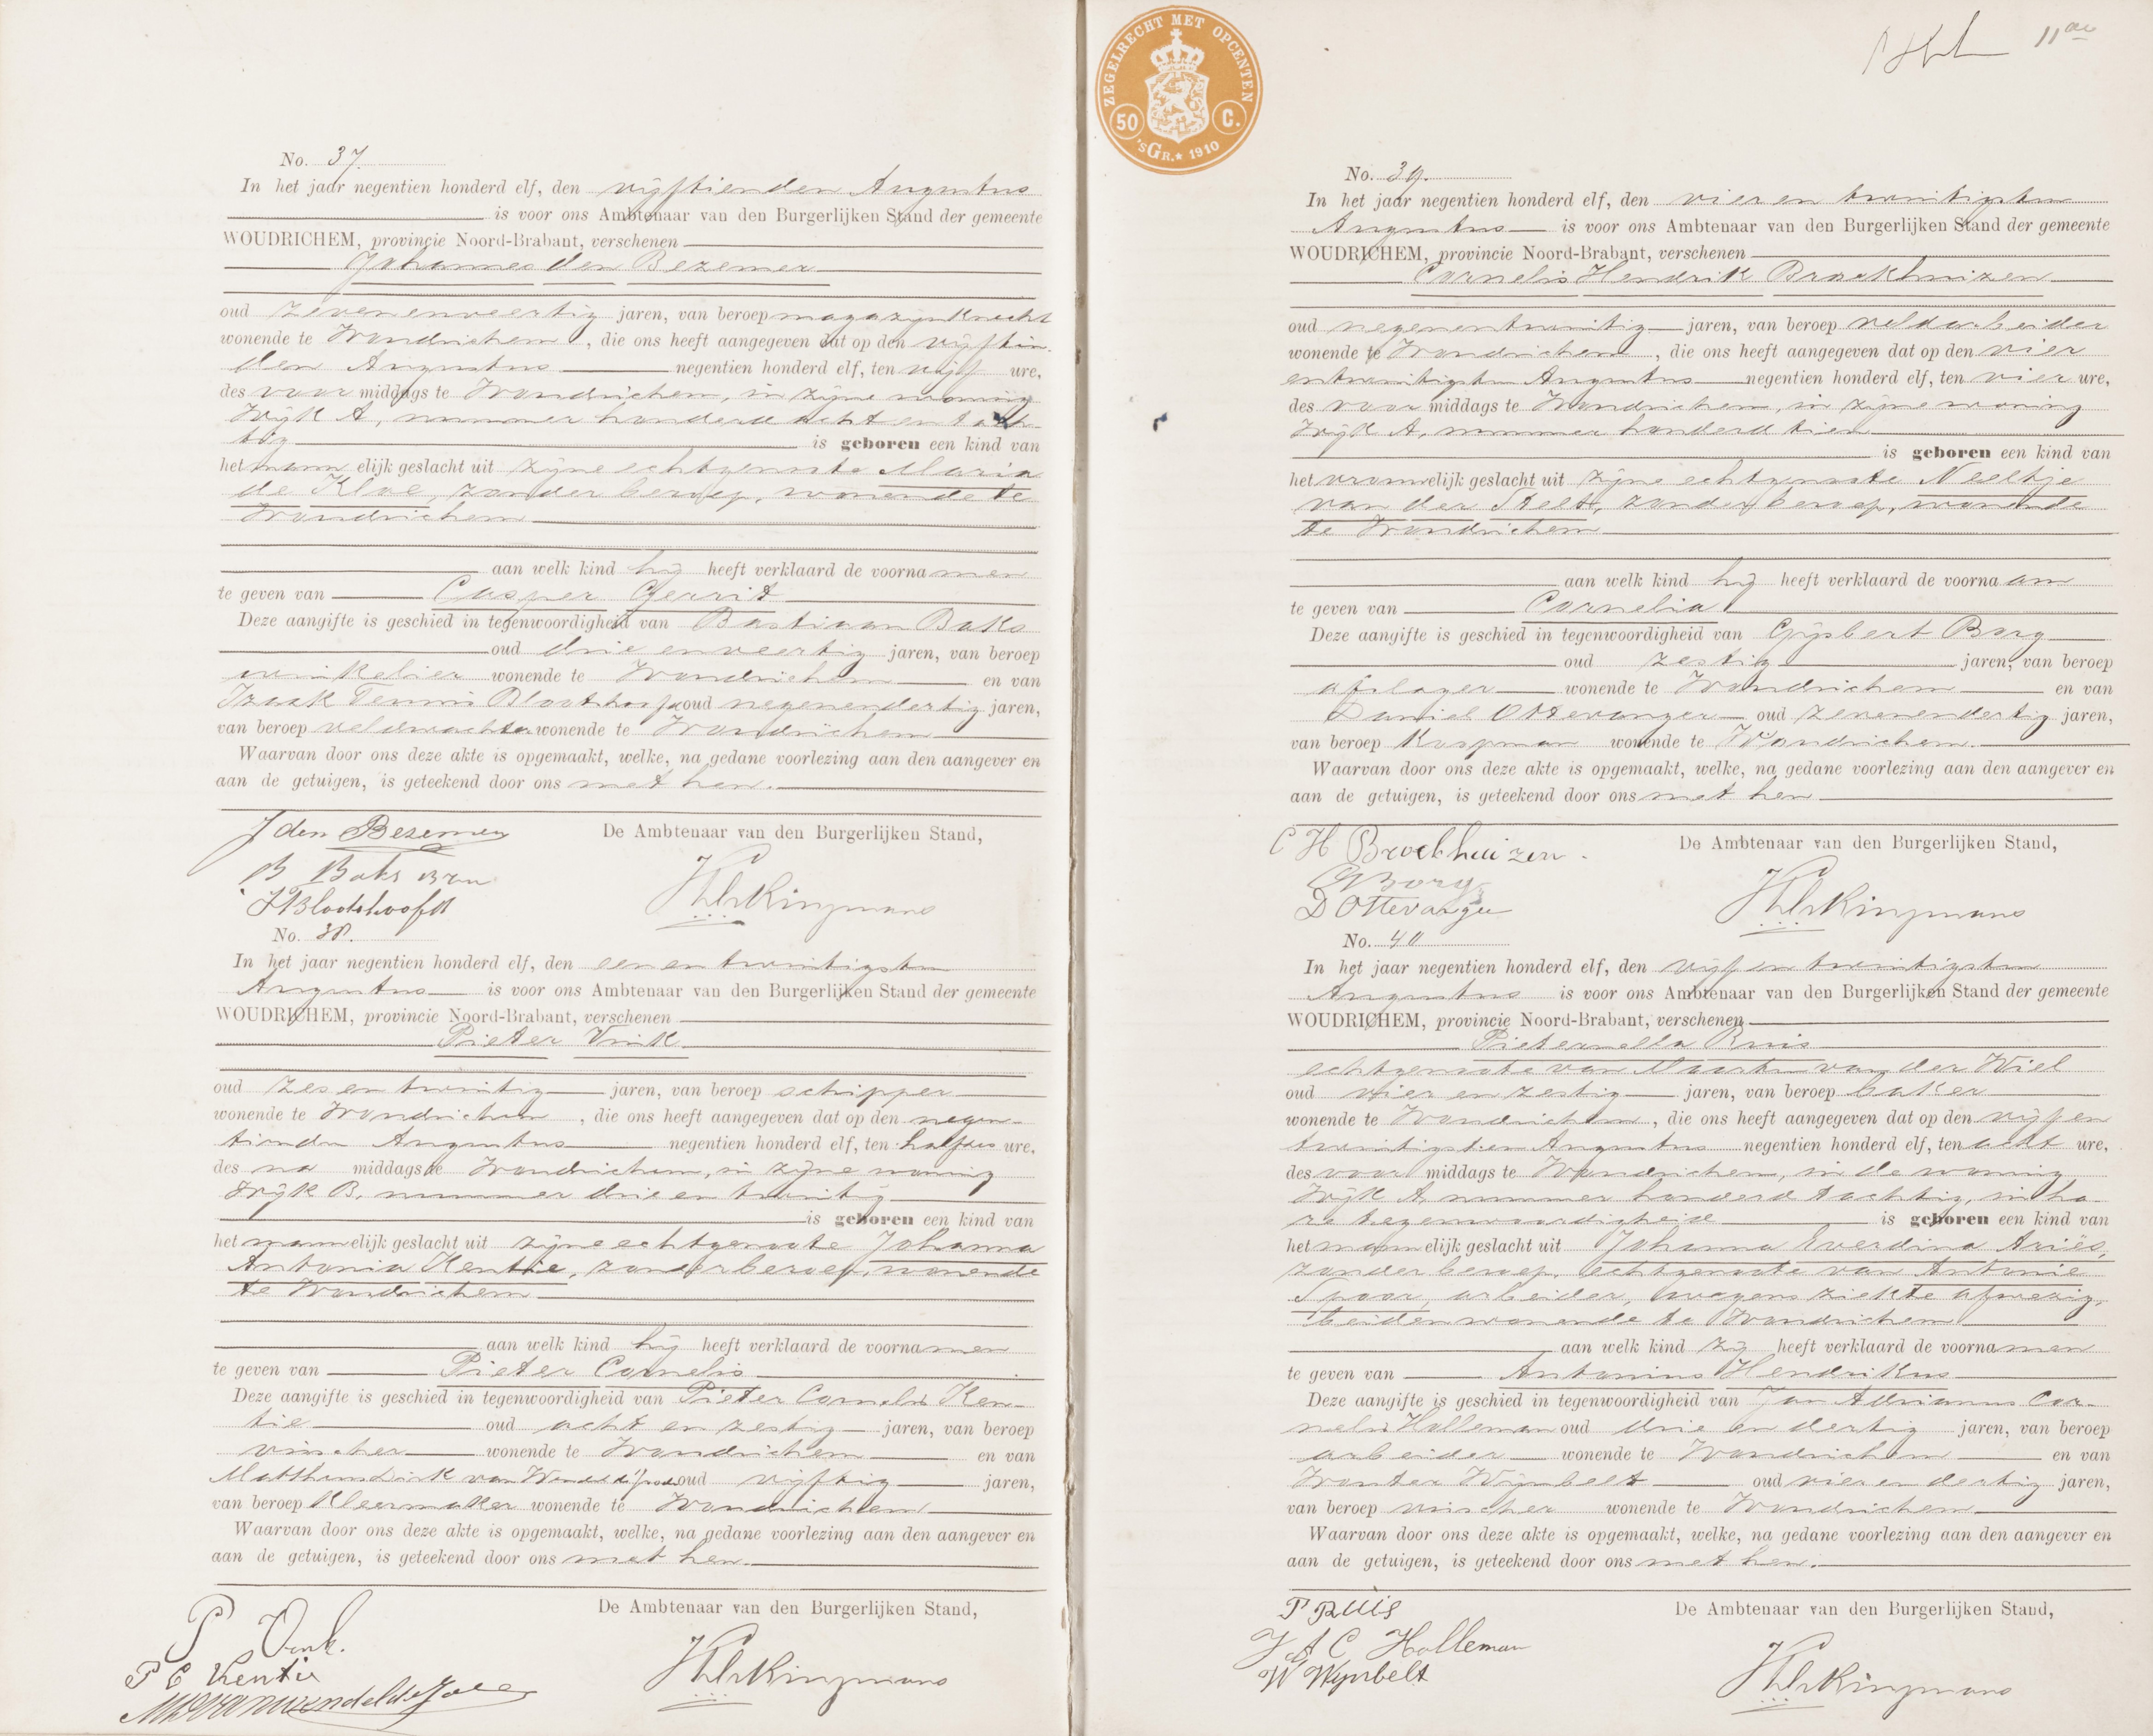 No. 37.
In het jaar negentien honderd elf, den vijftienden Augustus
is voor ons Ambtenaar van den Burgerlijken Stand der gemeente
WOUDRICHEM, provincie Noord-Brabant, verschenen
Johannes den Bezemer
oud zevenenveertig jaren, van beroep magazijnknecht
wonende te Woudrichem, die ons heeft aangegeven dat op den vijftien-
den Augustus negentien honderd elf, ten vijf ure,
des voor middags te Woudrichem, in zijne woning
Wijk A, nummer honderd acht en tach-
tig is geboren een kind van
het mannelijk geslacht uit zijne echtgenoote Maria
de Kloe, zonder beroep, wonende te
Woudrichem
aan welk kind hij heeft verklaard de voornamen
te geven van Casper Gerrit
Deze aangifte is geschied in tegenwoordigheid van Bastiaan Baks
oud drie en veertig jaren, van beroep
winkelier wonende te Woudrichem en van
Izaak Teunis Bloothoofd oud negenendertig jaren,
van beroep veldwachter wonende te Woudrichem
Waarvan door ons deze akte is opgemaakt, welke, na gedane voorlezing aan den aangever en
aan de getuigen, is geteekend door ons met hen.
J den Bezemer
De Ambtenaar van den Burgerlijken Stand,
B Baks
J T Bloothoofd
No. 38.
In het jaar negentien honderd elf, den een en twintigsten
Augustus is voor ons Ambtenaar van den Burgerlijken Stand der gemeente
WOUDRICHEM, provincie Noord-Brabant, verschenen
Pieter Vink
oud zes en twintig jaren, van beroep schipper
wonende te Woudrichem, die ons heeft aangegeven dat op den negen-
tienden Augustus negentien honderd elf, ten half zes ure,
des na middags te Woudrichem, in zijne woning
Wijk B, nummer drie en twintig
is geboren een kind van
het mannelijk geslacht uit zijne echtgenoote Johanna
Antonia Kentie, zonder beroep, wonende
te Woudrichem
aan welk kind hij heeft verklaard de voornamen
te geven van Pieter Cornelis
Deze aangifte is geschied in tegenwoordigheid van Pieter Cornelis Ken-
tie oud acht en zestig jaren, van beroep
visscher wonende te Woudrichem en van
van oud vijftig jaren,
van beroep kleermaker wonende te Woudrichem
Waarvan door ons deze akte is opgemaakt, welke, na gedane voorlezing aan den aangever en
aan de getuigen, is geteekend door ons met hen.
De Ambtenaar van den Burgerlijken Stand,
P Vink.
P C Kentie
ZEGELRECHT MET OPCENTEN
50 C.
'sGR. 1910
11de
No. 39.
In het jaar negentien honderd elf, den vier en twintigsten
Augustus is voor ons Ambtenaar van den Burgerlijken Stand der gemeente
WOUDRICHEM, provincie Noord-Brabant, verschenen
Cornelis Hendrik Broekhuizen
oud negenentwintig jaren, van beroep veldarbeider
wonende te Woudrichem, die ons heeft aangegeven dat op den vier
entwintigsten Augustus negentien honderd elf, ten vier ure,
des voor middags te Woudrichem, in zijne woning
Wijk A, nummer honderd tien
is geboren een kind van
het vrouwelijk geslacht uit zijne echtgenoote Neeltje
van der Stelt, zonder beroep, wonende
te Woudrichem
aan welk kind hij heeft verklaard de voornaam
te geven van Cornelia
Deze aangifte is geschied in tegenwoordigheid van Gijsbert Borg
oud zestig jaren, van beroep
afslager wonende te Woudrichem en van
Daniel Ottevanger oud zevenendertig jaren,
van beroep koopman wonende te Woudrichem.
Waarvan door ons deze akte is opgemaakt, welke, na gedane voorlezing aan den aangever en
aan de getuigen, is geteekend door ons met hen
C H Broekhuizen.
De Ambtenaar van den Burgerlijken Stand,
G Borg
D Ottevanger
No. 40
In het jaar negentien honderd elf, den vijf en twintigsten
Augustus is voor ons Ambtenaar van den Burgerlijken Stand der gemeente
WOUDRICHEM, provincie Noord-Brabant, verschenen
Pieternella Ruis
echtgenoote van Maarten van der Wiel
oud vier en zestig jaren, van beroep baker
wonende te Woudrichem, die ons heeft aangegeven dat op den vijf en
twintigsten Augustus negentien honderd elf, ten acht ure,
des voor middags te Woudrichem, in de woning
Wijk A, nummer honderd tachtig, in ha-
re tegenwoordigheid is geboren een kind van
het mannelijk geslacht uit Johanna Everdina Ariës,
zonder beroep, echtgenoote van Antonie
Spoor, arbeider, wegens ziekte afwezig,
beiden wonende te Woudrichem
aan welk kind zij heeft verklaard de voornamen
te geven van Antonius Hendrikus
Deze aangifte is geschied in tegenwoordigheid van Jan Adrianus Cor-
nelis Holleman oud drie en dertig jaren, van beroep
arbeider wonende te Woudrichem en van
Wouter Wijnbelt oud vier en dertig jaren,
van beroep visscher wonende te Woudrichem
Waarvan door ons deze akte is opgemaakt, welke, na gedane voorlezing aan den aangever en
aan de getuigen, is geteekend door ons met hen.
P Ruis
De Ambtenaar van den Burgerlijken Stand,
J A C Holleman
W Wijnbelt